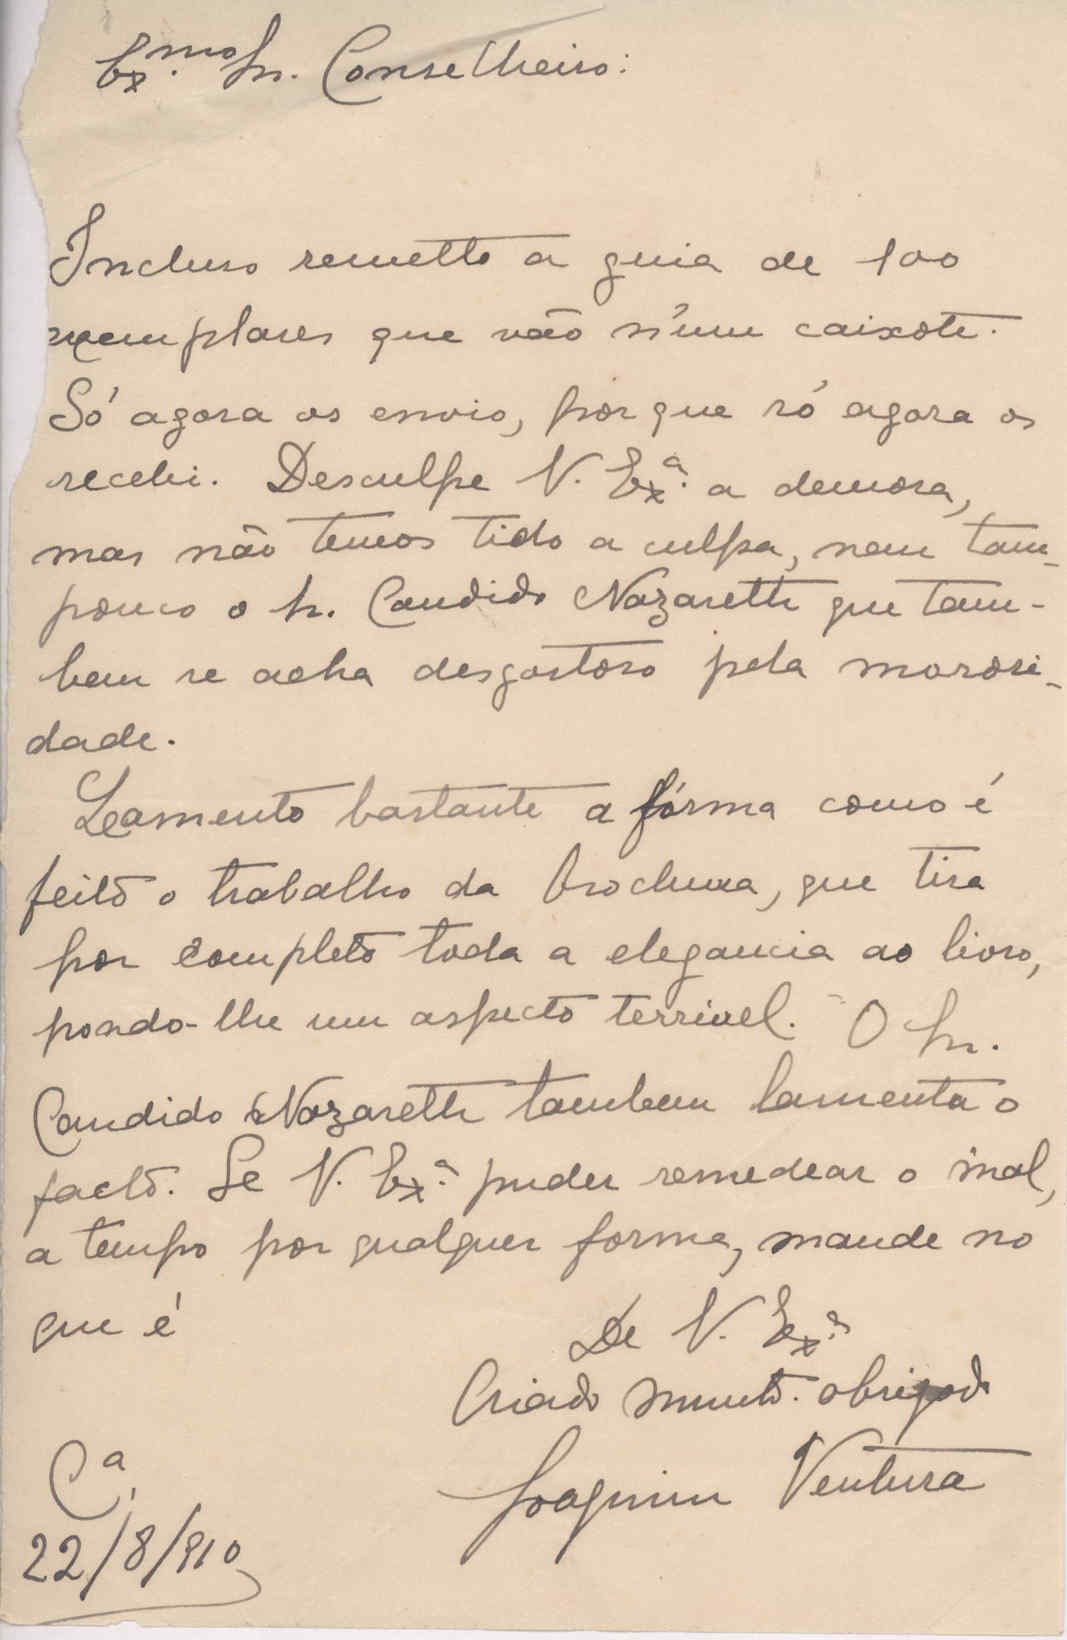 Ex.mo Sr. Conselheiro:
Incluso remetto a guia de 100
exemplares que vão n'um caixote.
Só agora os envio, porque só agora os
recebi. Desculpe V. Ex.ª a demora,
mas não temos tido a culpa, nem tam-
pouco o Sr. Candido Nazareth que tam-
bem se acha desgostoso pela morosi-
dade.
Lamento bastante a fórma como é
feito o trabalho da brochura, que tira
por completo toda a elegancia ao livro,
pondo-lhe um aspecto terrivel. O Sr.
Candido Nazareth tambem lamenta o
facto. Se V. Ex.ª puder remedear o mal,
a tempo por qualquer forma, mande no
que é
De V. Ex.ª
Criado muito. obrigado
Joaquim Ventura
Cª,
22/8/910